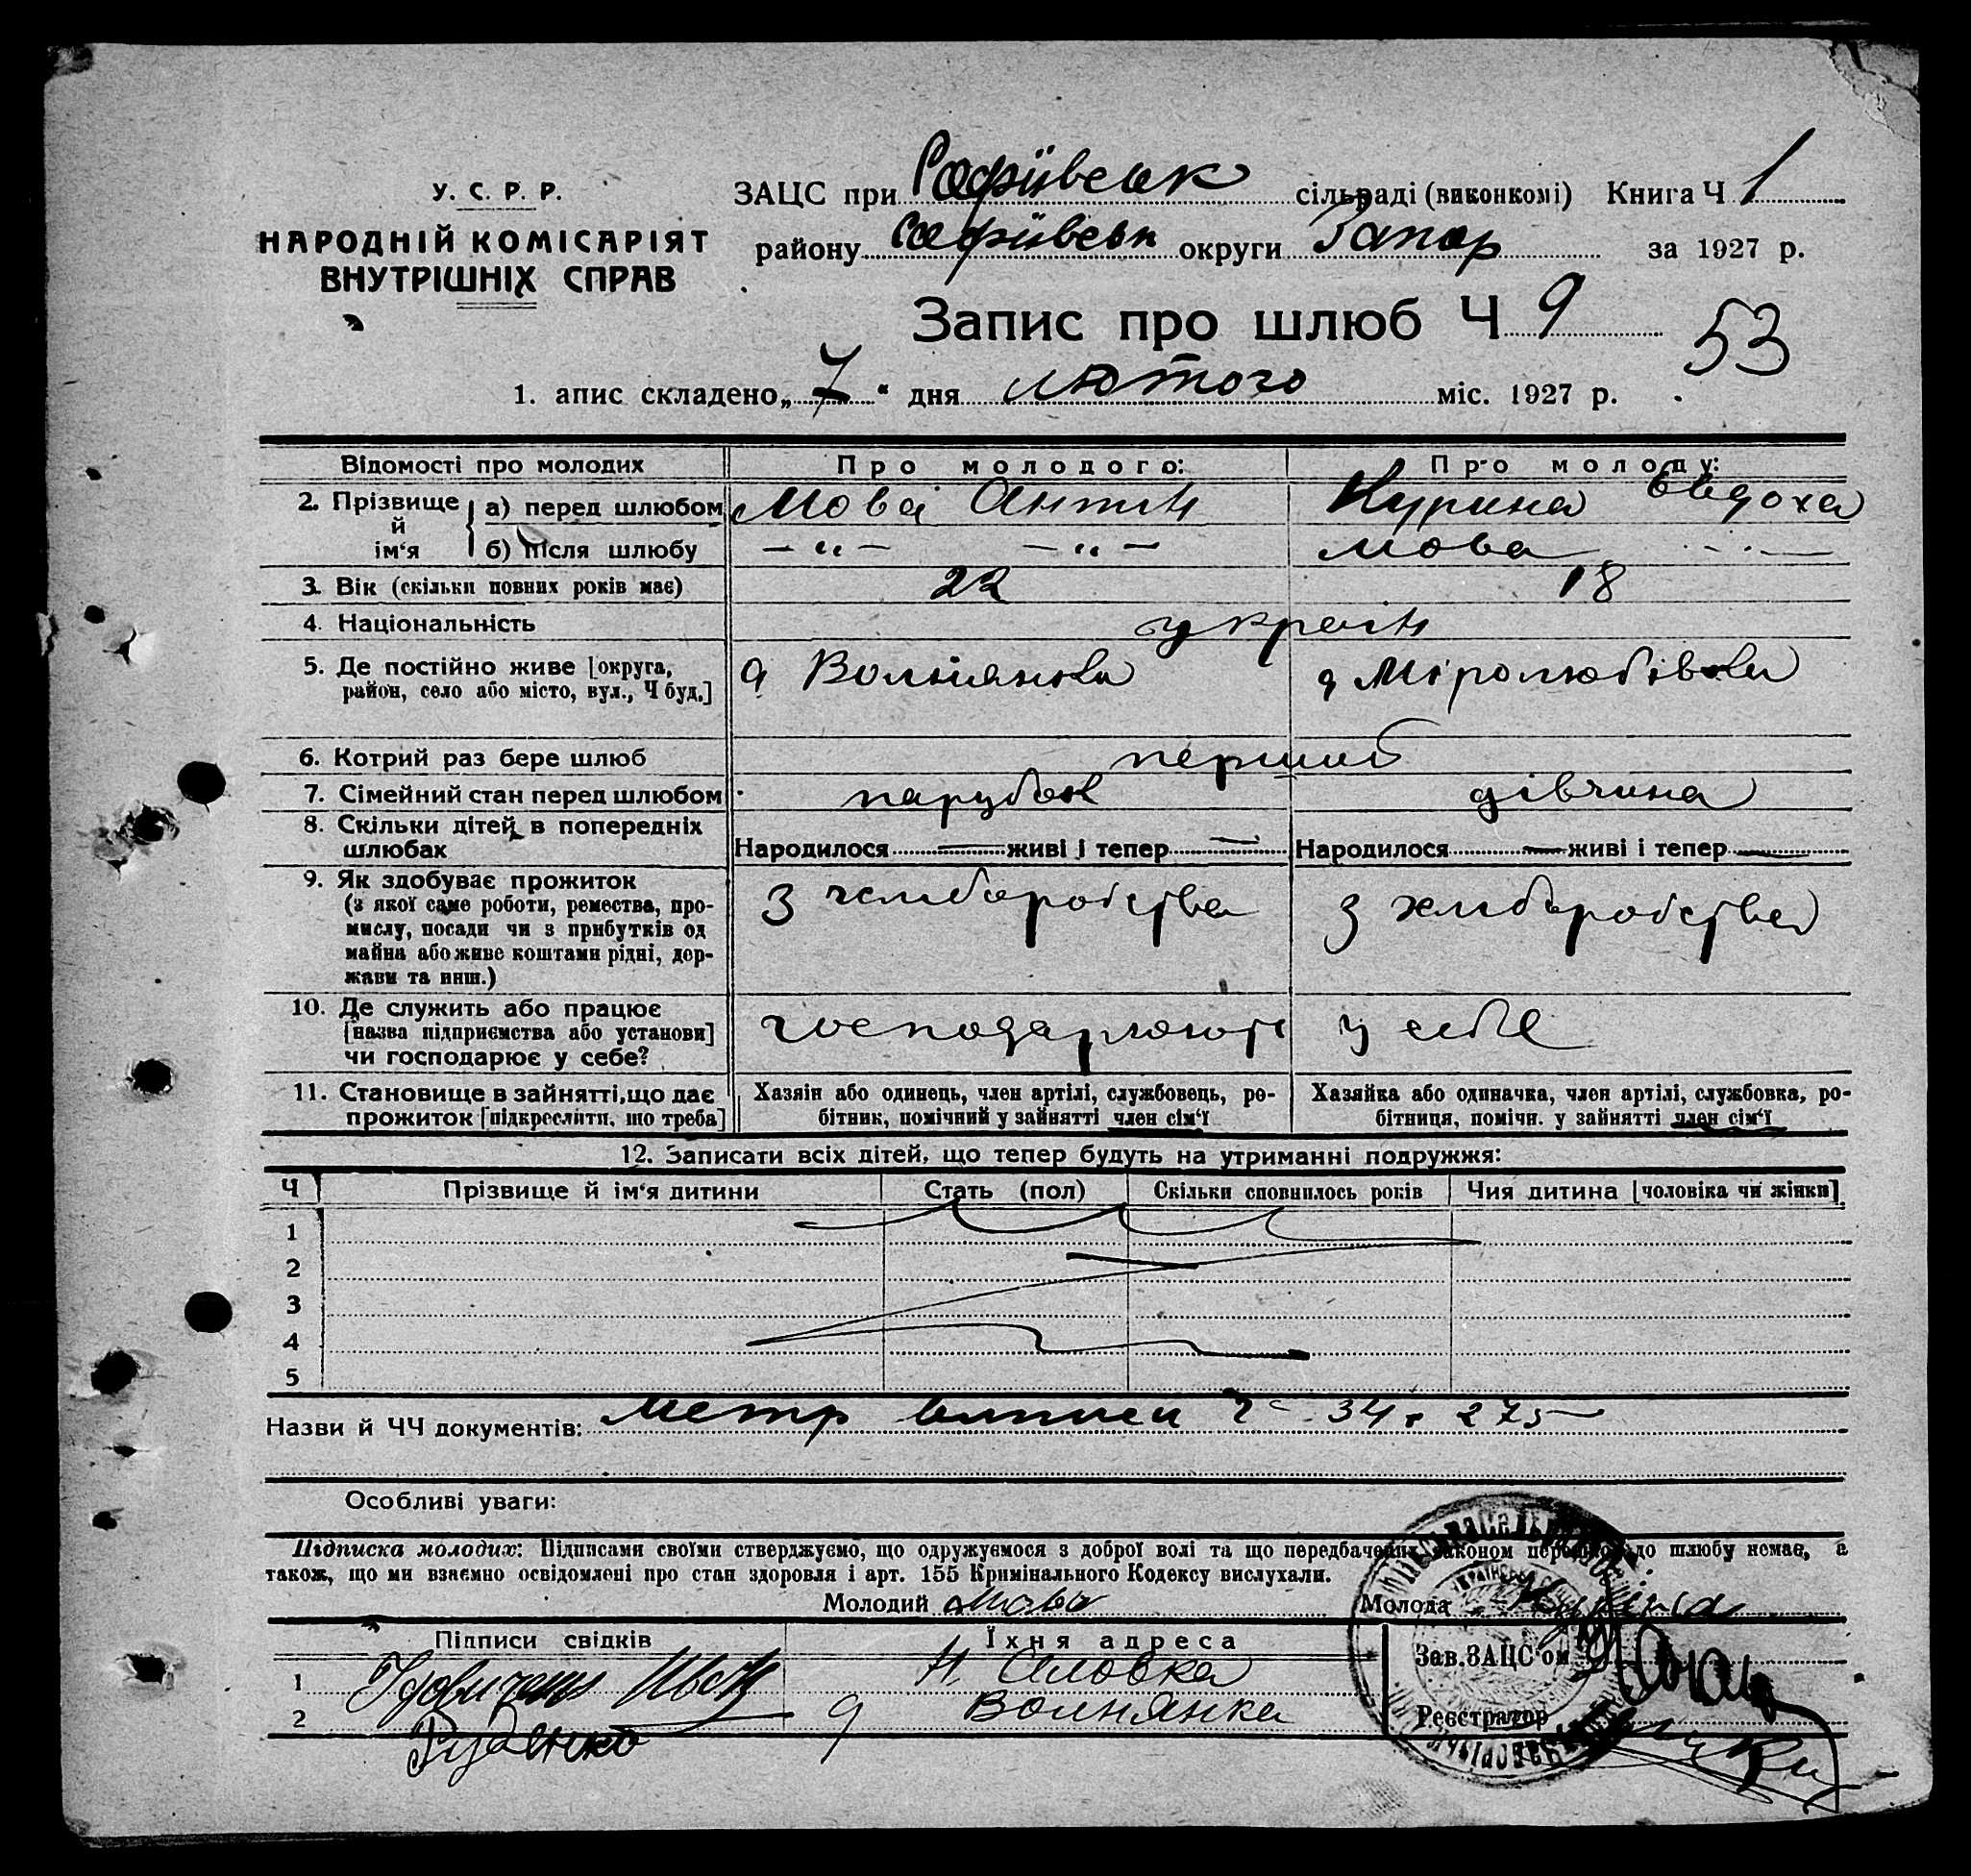 У. С. Р. Р.
НАРОДНІЙ КОМІСАРІЯТ
ВНУТРІШНІХ СПРАВ
ЗАЦС при Софіївськ сільраді (виконкомі) Книга Ч 1
району Софіївськ округи Запор за 1927 р.
Запис про шлюб Ч 9
53
1. апис складено „7“ дня лютого міс. 1927 р.
Відомості про молодих Про молодого: Про молоду:
2. Прізвище й ім‘я а) перед шлюбом Мова Антін Курина Евдоха
б) після шлюбу — “ — — “ — Мова — “ —
3. Вік (скільки повних років має) 22 18
4. Національність україн
5. Де постійно живе [округа, район, село або місто, вул., Ч буд.] д Вольнянка д Міролюбівка
6. Котрий раз бере шлюб перший
7. Сімейний стан перед шлюбом парубок дівчина
8. Скільки дітей в попередніх шлюбах Народилося — живі і тепер — Народилося — живі і тепер —
9. Як здобуває прожиток
(з якої саме роботи, ремества, про-
мислу, посади чи з прибутків од
майна або живе коштами рідні, дер-
жави та инш.)
З хлиборобства З хлиборобства
10. Де служить або працює
[назва підприємства або установи]
чи господарює у себе?
господарюють у себе
11. Становище в зайнятті, що дає
прожиток [підкреслити, що треба]
Хазяін або одинець, член артілі, службовець, ро-
бітник, помічний у зайнятті член сім‘ї
Хазяйка або одиначка, член артілі, службовка, ро-
бітниця, помічн. у зайнятті член сім‘ї
12. Записати всіх дітей, що тепер будуть на утриманні подружжя:
Ч Прізвище й ім‘я дитини Стать (пол) Скільки сповнилось років Чия дитина [чоловіка чи жінки]
1
2
3
4
5
Назви й ЧЧ документів: Метр виписи Ч 34 275
Особливі уваги:
Підписка молодих: Підписами своїми стверджуємо, що одружуємося з доброї волі та що передбачених законом перешкод до шлюбу немає, а
також, що ми взаємно освідомлені про стан здоровля і арт. 155 Кримінального Кодексу вислухали.
Молодий Мова Молода Куріна
Підписи свідків Їхня адреса
Зав. ЗАЦС‘ом
1
2 Руденко д Волнянка
Реєстратор